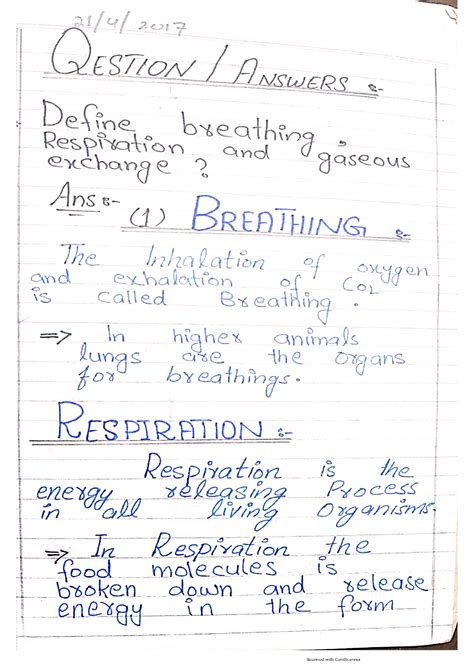 21/4/2017
QESTION / ANSWERS :-
Define breathing,
Respiration and gaseous
exchange ?
Ans :- (1) BREATHING :-
The Inhalation of oxygen
and exhalation of CO2
is called Breathing.
=> In higher animals
lungs are the organs
for breathings.
RESPIRATION :-
Respiration is the
energy releasing Process
in all living Organisms.
=> In Respiration the
food molecules is
broken down and release
energy in the form
Scanned with CamScanner